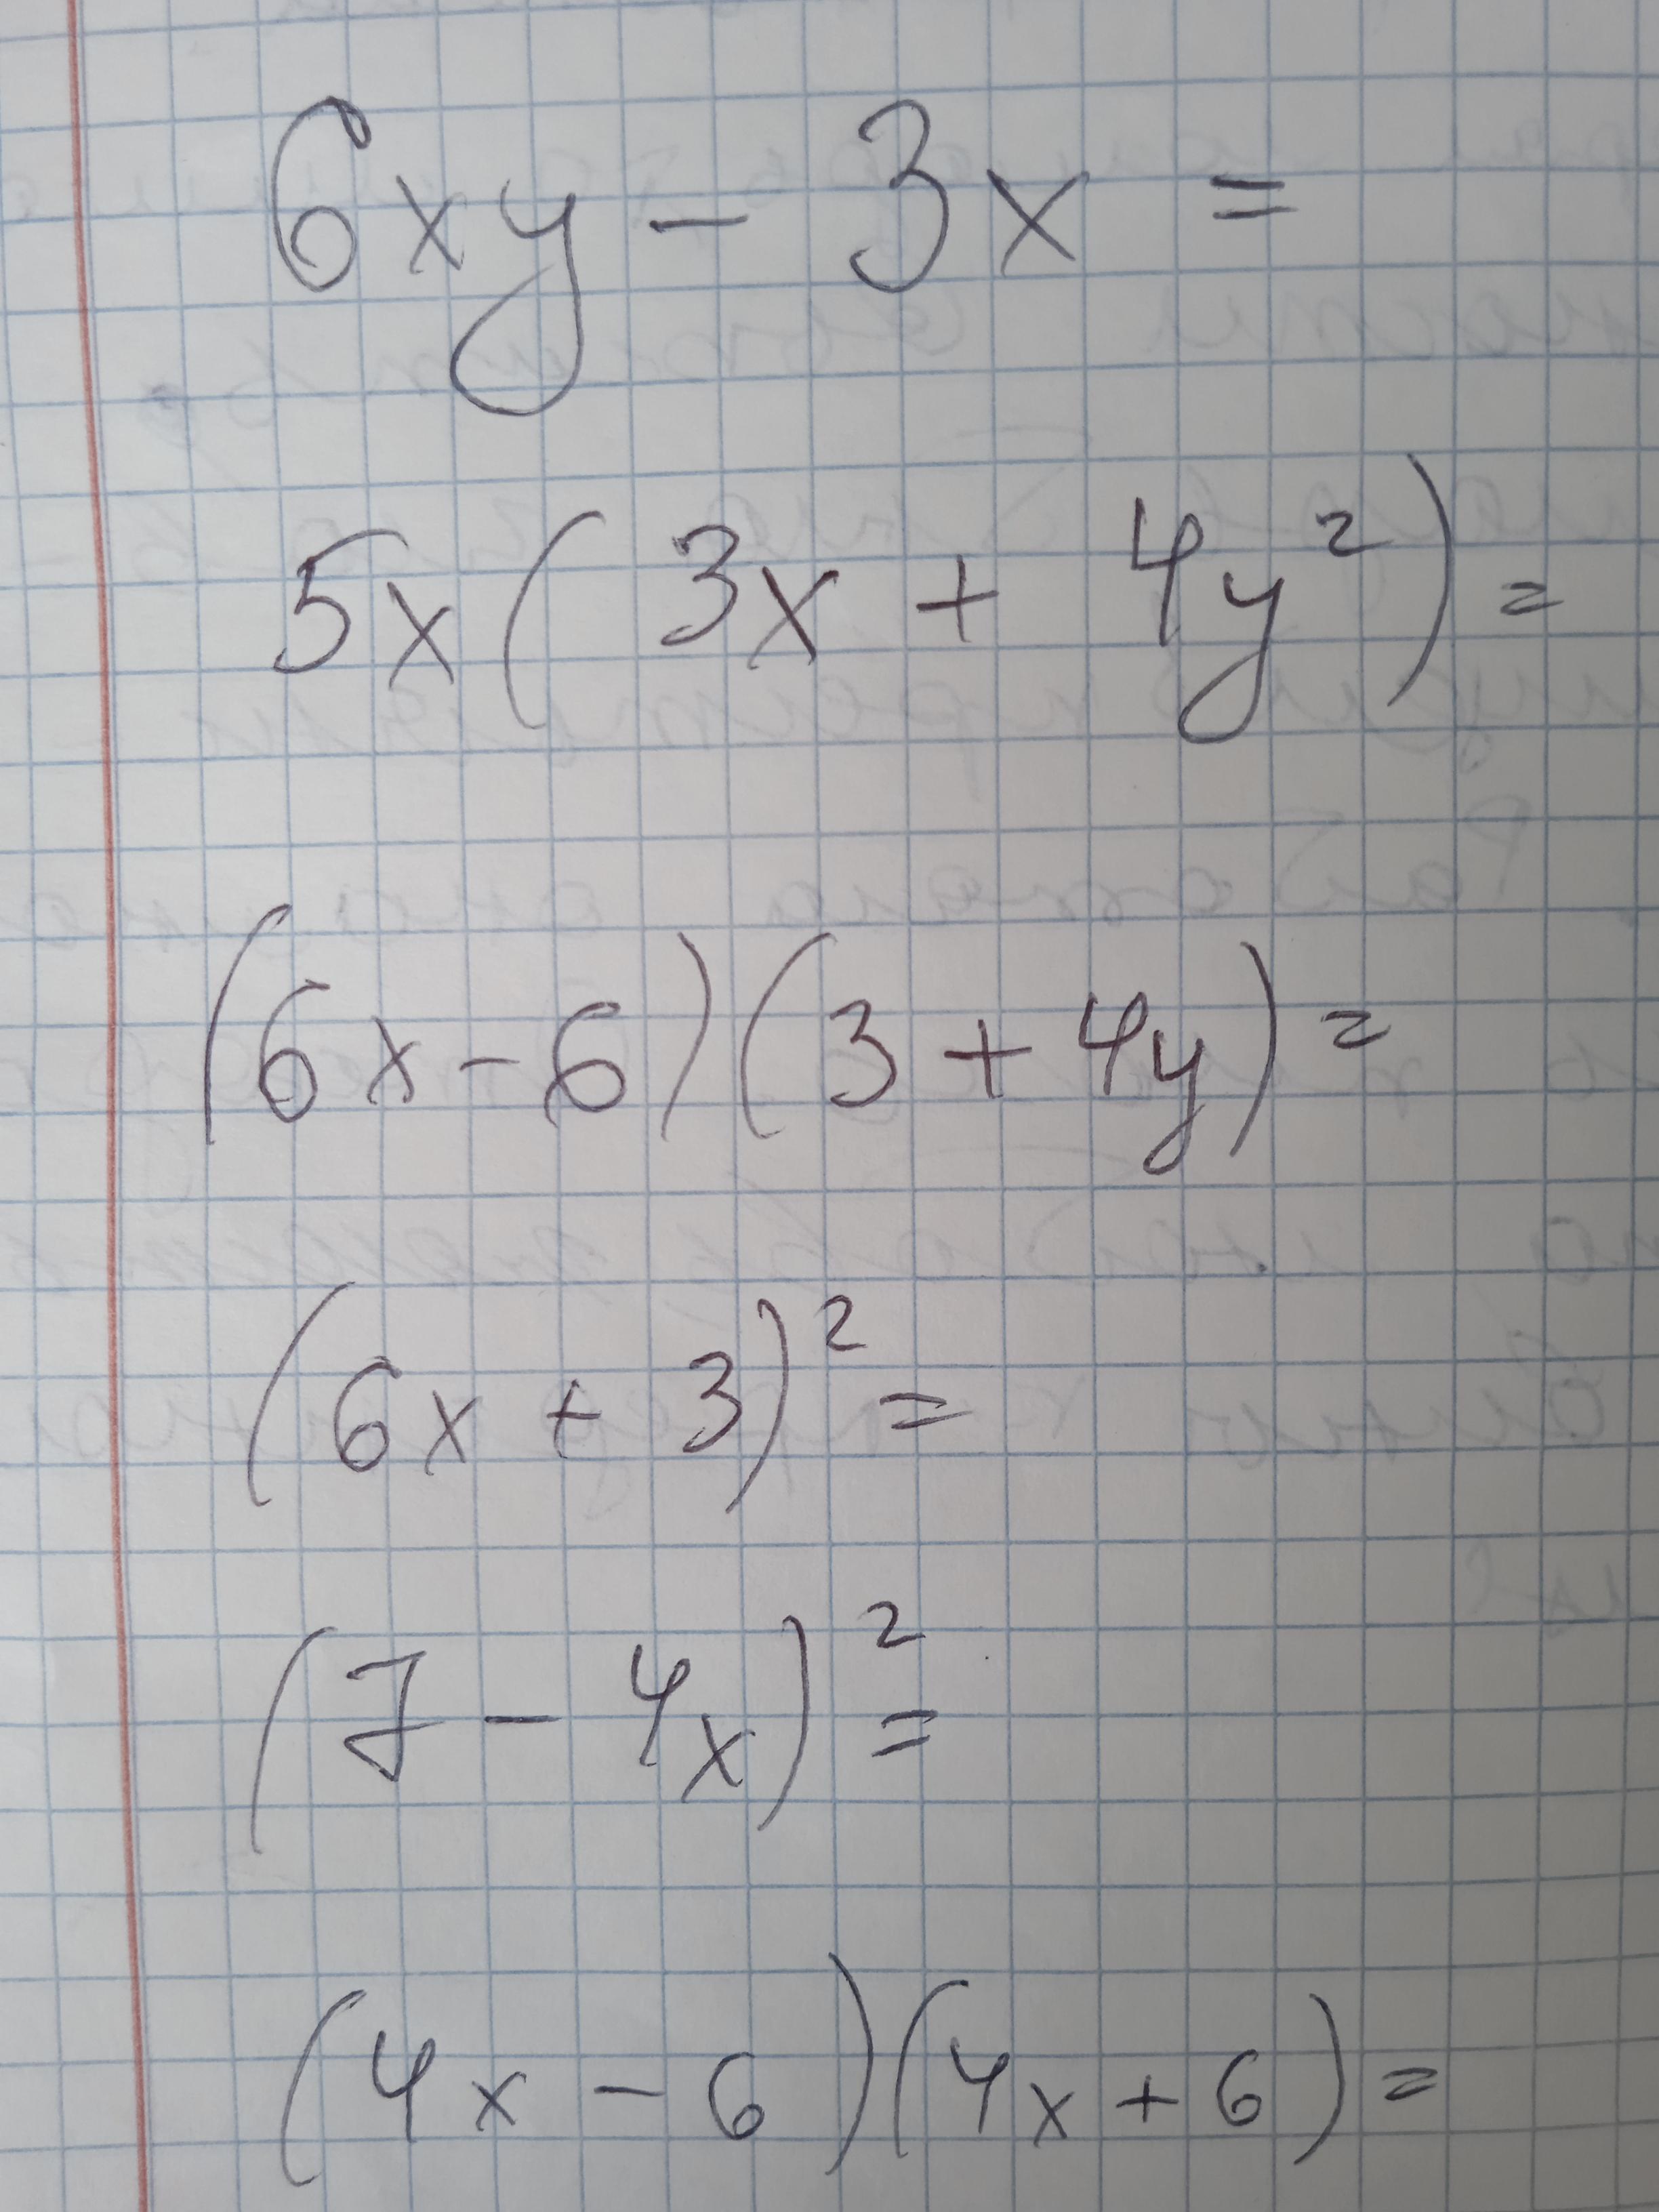 6xy - 3x =
5x(3x + 4y²) =
(6x - 6)(3 + 4y) =
(6x + 3)² =
(7 - 4x)² =
(4x - 6)(4x + 6) =